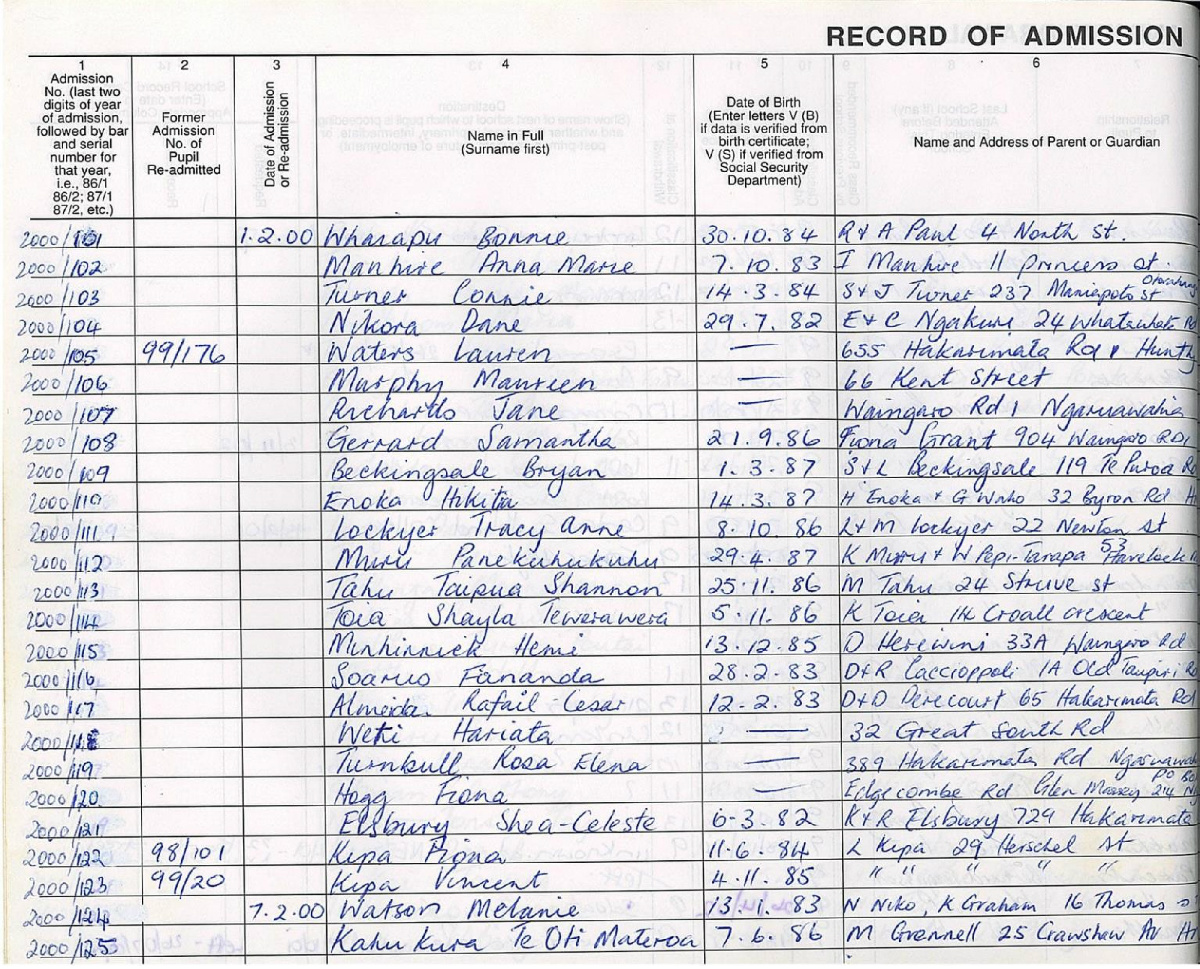 RECORD OF ADMISSION
1 2 3 4 5 6
Admission No. (last two digits of year of admission, followed by bar and serial number for that year, i.e., 86/1 86/2; 87/1 87/2, etc.) Former Admission No. of Pupil Re-admitted Date of Admission or Re-admission Name in Full (Surname first) Date of Birth (Enter letters V (B) if data is verified from birth certificate; V (S) if verified from Social Security Department) Name and Address of Parent or Guardian
2000/101 1.2.00 Wharapu Bonnie 30.10.84 R & A Paul 4 North St.
2000/102 Manhire Anna Marie 7.10.83 I Manhire 11 Princess St.
2000/103 Turner Connie 14.3.84 S & J Turner 237 Maniapoto St
2000/104 Nikora Dane 29.7.82 E & C Ngakuru 24
2000/105 99/176 Waters Lauren — 655 Hakarimata Rd
2000/106 Murphy Maureen — 66 Kent Street
2000/107 Richards Jane — Waingaro Rd 1 Ngaruawahia
2000/108 Gerrard Samantha 21.9.86 Fiona Grant 904 Waingaro RD1
2000/109 Beckingsale Bryan 1.3.87 S & L Beckingsale 119 Te Puroa
2000/110 Enoka Hikita 14.3.87 H Enoka & G 32 Byron Rd
2000/111 Lockyer Tracy Anne 8.10.86 L & M Lockyer 22 Newton St
2000/112 Muru Panekuhukuhu 29.4.87 K Muru & W Pepi-Tarapa 53 Havelock
2000/113 Tahu Taipua Shannon 25.11.86 M Tahu 24 Struve St
2000/114 Toia Shayla Tewerawera 5.11.86 K Toia Croall Crescent
2000/115 Minhinnick Hemi 13.12.85 D Herewini 33A Waingaro Rd
2000/116 Soaruo Fananda 28.2.83 D & R Caccioppoli 1A Old Taupiri
2000/117 Almeida Rafail Cesar 12.2.83 D & D Derecourt 65 Hakarimata Rd
2000/118 Weti Hariata — 32 Great South Rd
2000/119 Turnbull Rosa Elena — 389 Hakarimata Rd
2000/120 Hogg Fiona — Edgecombe Rd Glen Massey PO
2000/121 Elsbury Shea-Celeste 6-3.82 K & R Elsbury 729 Hakarimata
2000/122 98/101 Kipa Fiona 11.6.84 L Kipa 29 Herschel St
2000/123 99/20 Kipa Vincent 4.11.85 " " " "
2000/124 7.2.00 Watson Melanie 13.11.83 N Niko, K Graham 16 Thomas
2000/125 Kahu Kura Te Oti Materoa 7.6.86 M Grennell 25 Crawshaw Av